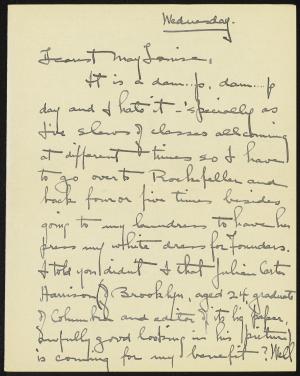 Wednesday.
Dearest May Louise,
It is a dam...p, dam...p
day and I hate it - 'specially as
I've slews of classes all coming
at different times so I have
to go over to Rockefeller and
back four or five times besides
going to my laundress to have her
press my white dress for Founders.
I told you didn't I that Julian Carter
Harrison of Brooklyn, aged 24, graduate
of Columbia and editor of its big paper,
awfully good looking in his picture,
is coming for my benefit? Well